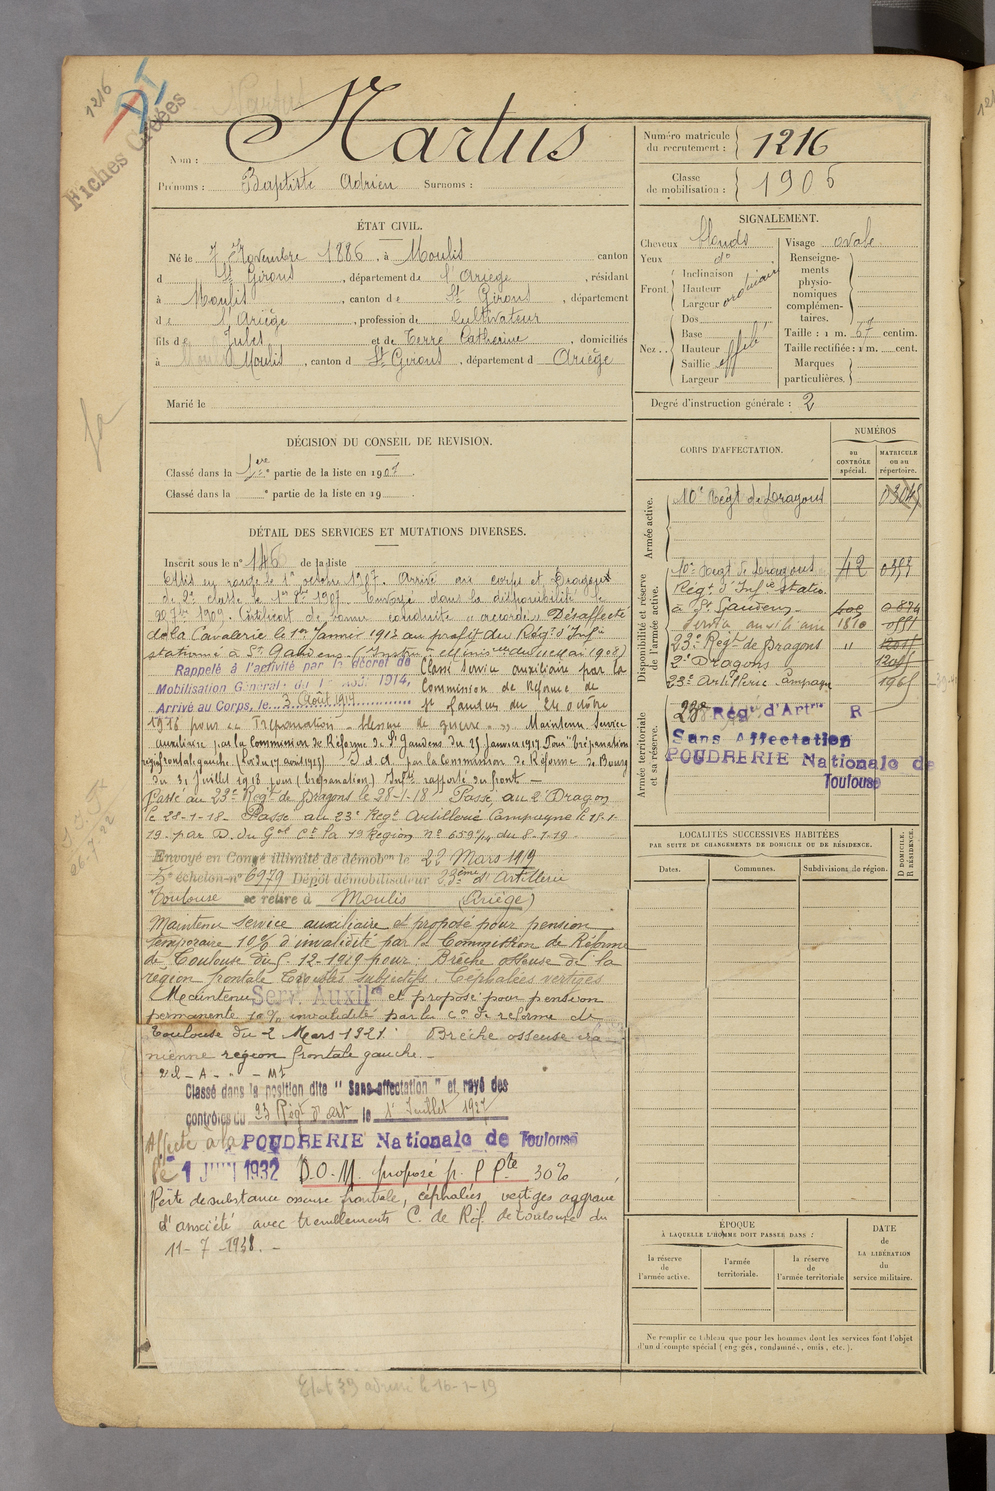 1216
Fiches Créées
Nom : Nartus
Prénoms : Baptiste Adrien Surnoms :
Numéro matricule du recrutement : 1216
Classe de mobilisation : 1906
ÉTAT CIVIL.
Né le 7 Novembre 1886, à Moulis canton
d St Girons, département de l'Ariège, résidant
à Moulis, canton de St Girons, département
de l'Ariège, profession de Cultivateur
fils de Jules et de Terré Catherine, domiciliés
à Moulis, canton d St Girons, département d Ariège
Marié le
SIGNALEMENT.
Cheveux blonds
Yeux do
Front. Inclinaison
Hauteur
Largeur ordinaire
Nez.. Dos
Base
Hauteur
Saillie effilé
Largeur
Visage ovale
Renseignements physionomiques complémentaires.
Taille : 1 m. 67 centim.
Taille rectifiée : 1 m. cent.
Marques particulières.
Degré d'instruction générale : 2
DÉCISION DU CONSEIL DE REVISION.
Classé dans la 1ère partie de la liste en 1907.
Classé dans la e partie de la liste en 19
DÉTAIL DES SERVICES ET MUTATIONS DIVERSES.
Inscrit sous le n° 146 de la liste
Mis en route le 1er octobre 1907. Arrivé au corps et Dragons
de 2e classe le 1er 8bre 1907. Envoyé dans la disponibilité le
20 7bre 1909. Certificat de bonne conduite "accordé" Désaffecté
de la Cavalerie le 1er Janvier 1913 au profit du Régt d'Infie
stationné à St Gaudens. (Instr n Melle du mai 1908)
Rappelé à l'activité par le décret de
Mobilisation Générale du 1er Août 1914,
Arrivé au Corps, le 3 Août 1914
Classé service auxiliaire par la
Commission de Réforme de
St Gaudens du 24 octobre
1916 pour "Trépanation - blessure de guerre". Maintenu Service
auxiliaire par la Commission de Réforme de St Gaudens du 25 Janvier 1917 Pour "trépanation
région frontale gauche. (Loi du 17 août 1915) I. d. A par la Commission de Réforme de Bourg
du 31 Juillet 1918 pour (trépanation) Infte rapporté du front. —
Passé au 23e Regt de Dragons le 28-1-18 Passé au 2e Dragon
le 28-1-18. Passé au 23e Regt Artillerie Campagne le 18-1-
19. par D. du Gal Ct la 19 Région n° 659 1/4 du 8-1-19.
Envoyé en Congé illimité de démobon le 22 Mars 1919
5e échelon n° 6979 Dépôt démobilisateur 23ème d'Artillerie
Toulouse se retire à Moulis (Ariège)
Maintenu service auxiliaire et proposé pour pension
temporaire 10% d'invalidité par la Commission de Réforme
de Toulouse du 5. 12-1919 pour : Brèche osseuse de la
région frontale troubles subjectifs. Céphalées vertiges
Maintenu Serv. Auxilre et proposé pour pension
permanente 10% invalidité par la Con de réforme de
Toulouse du 2 Mars 1921 : Brèche osseuse crâ
nienne région frontale gauche. —
Classé dans la position dite "Sans-affectation" et rayé des
contrôles du 23 Régt d'art le 1er Juillet 1927
Affecté à la POUDRERIE Nationale de Toulouse
le 1 JUIN 1932 D.O.M. proposé p. P Pte 30%
Perte de substance osseuse frontale, céphalées, vertiges aggravé
d'anxiété avec tremblements C. de Réf. de Toulouse du
11-7-1938. —
CORPS D'AFFECTATION.
NUMÉROS
au CONTRÔLE spécial.
MATRICULE ou au répertoire.
Armée active.
10e Régt de Dragons
Disponibilité et réserve de l'armée active.
10e Regt de Dragons 42
Régt d'Infie statio.
à St Gaudens
Service auxiliaire 1810
23e Regt de Dragons "
2e Dragons
23e Artillerie Campagne
Armée territoriale et sa réserve.
23e Régt d'Artrie R
Sans Affectation
POUDRERIE Nationale de
Toulouse
LOCALITÉS SUCCESSIVES HABITÉES
PAR SUITE DE CHANGEMENTS DE DOMICILE OU DE RÉSIDENCE.
Dates.
Communes.
Subdivisions de région.
D DOMICILE. R RÉSIDENCE.
ÉPOQUE
À LAQUELLE L'HOMME DOIT PASSER DANS :
la réserve de l'armée active.
l'armée territoriale.
la réserve de l'armée territoriale
DATE de LA LIBÉRATION du service militaire.
Ne remplir ce tableau que pour les hommes dont les services font l'objet
d'un décompte spécial (engagés, condamnés, omis, etc.).
Etat 39 adressé le 16-1-19